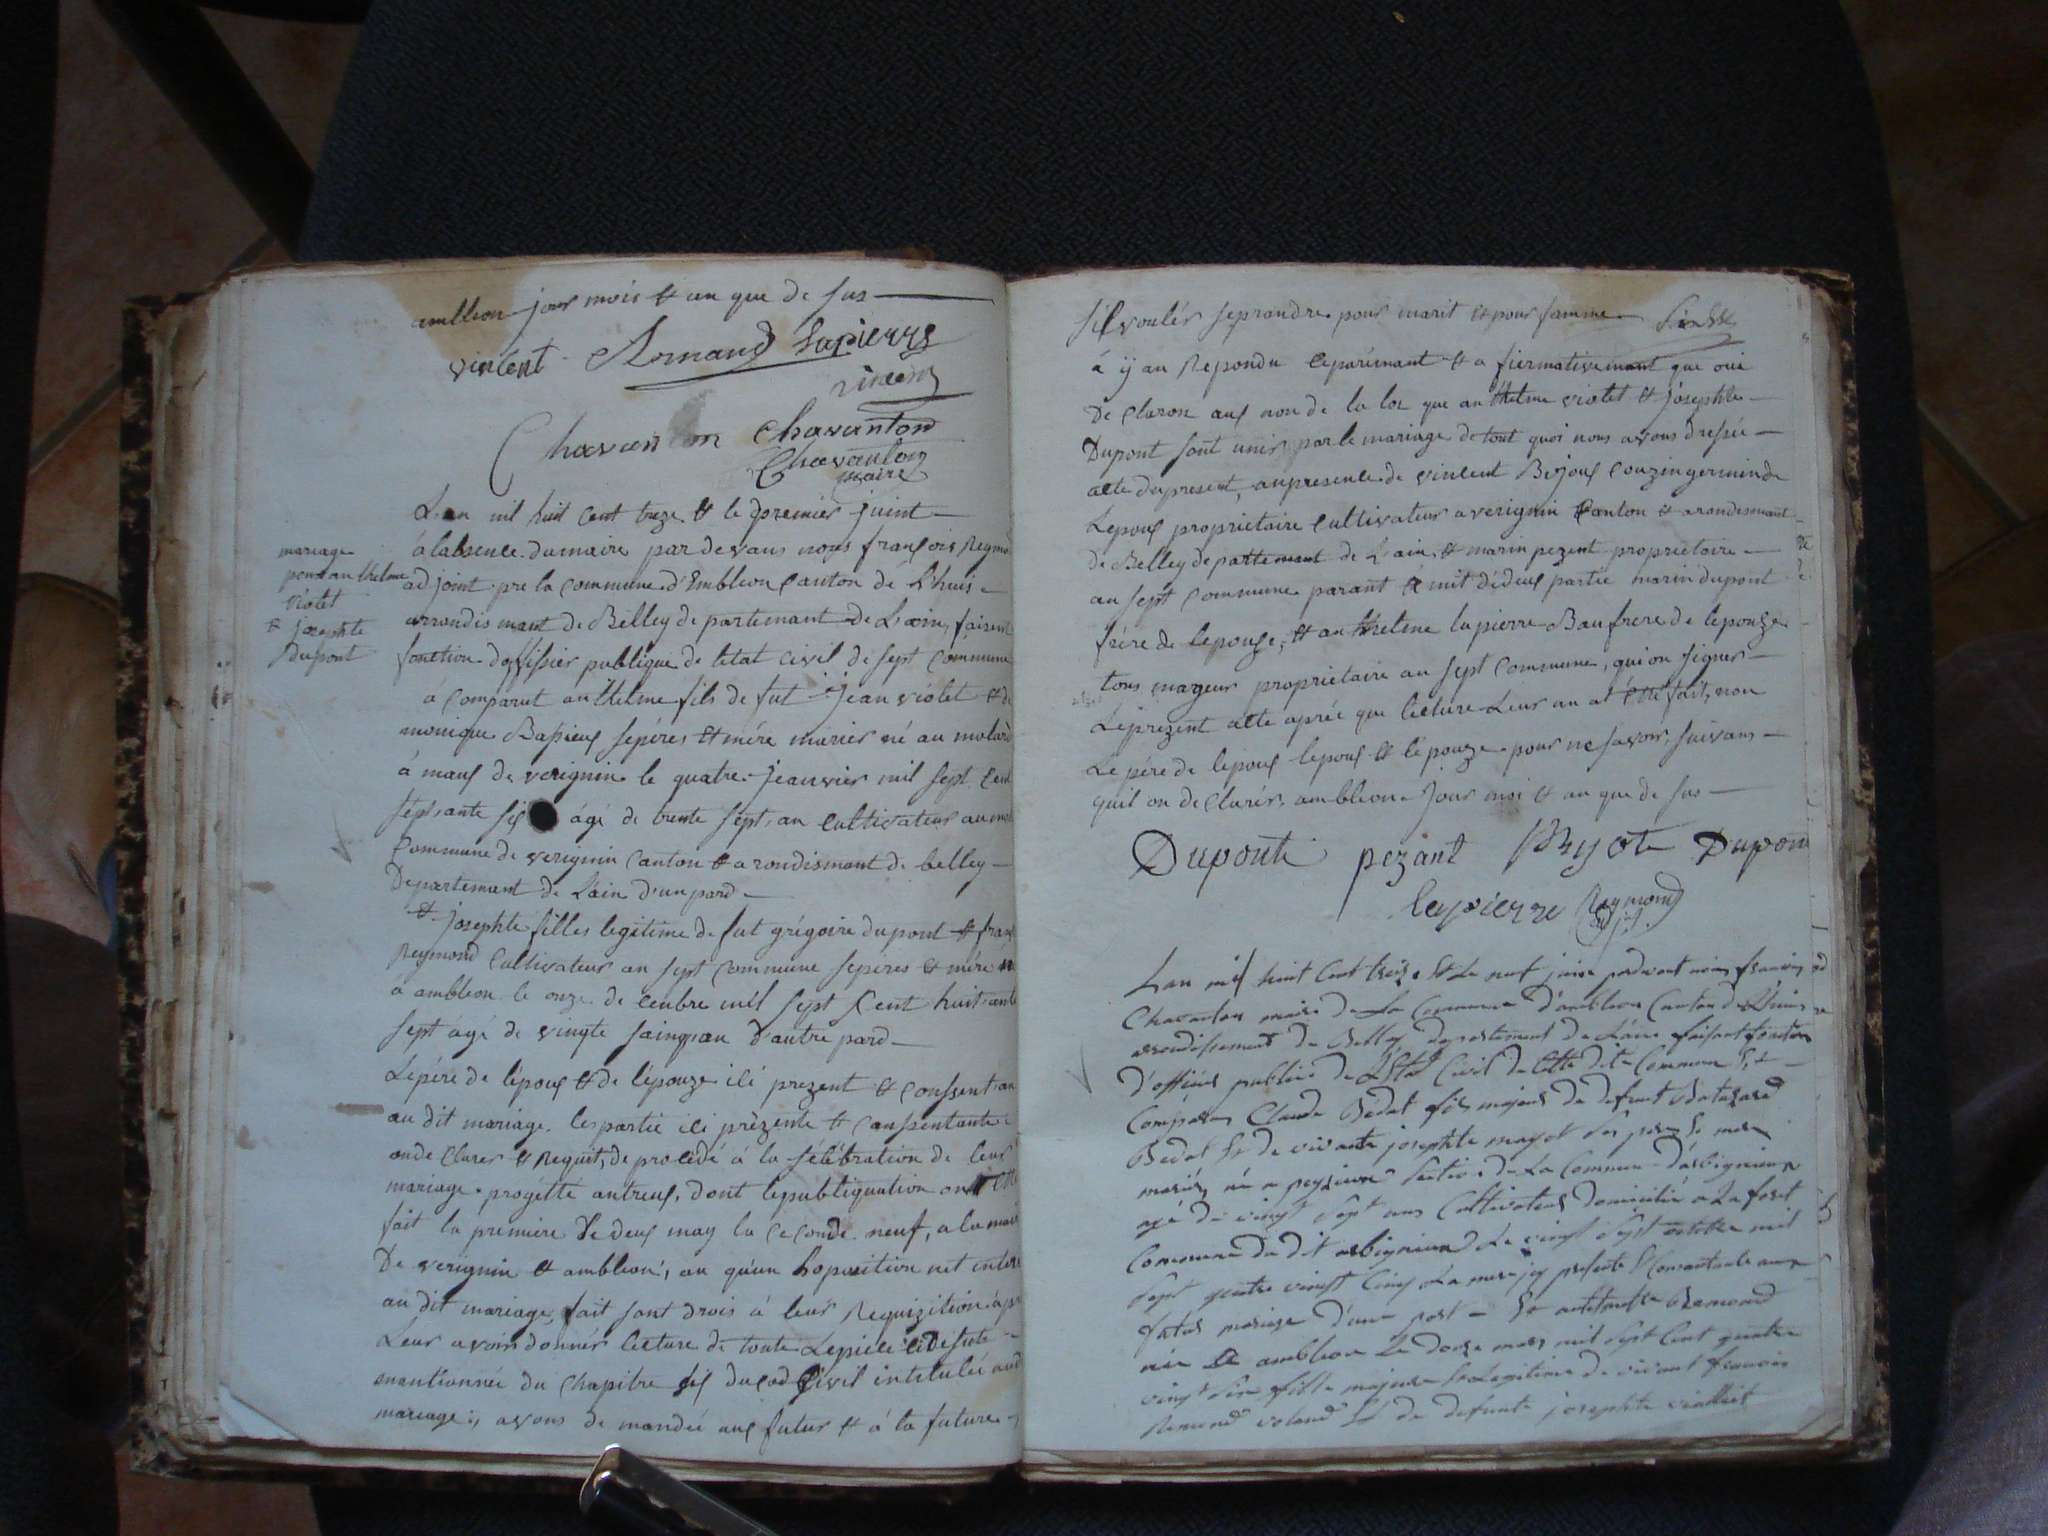 amblleon jour mois et an que de sus
vincent Armand Lapierre
vincent
Chavanton Chavanton
Chavanton
maire
L'an mil huit cent treze et le premier juint
mariage
pour anthelme
violet
et josephte
dupont
à labsence du maire par devans nous françois Reymo
adjoint pre la commune d'Embleon canton de Lhuis
arrondismant de Belley de partemant de L'ain, faisent
fonction doffissier publique de letat civil de sept commune
à comparut anthelme fils de fut jean violet et de
monique Bassieus sepéres et mére mariér né au molard
à maus de verignin le quatre jeanvier mil sept cent
septsante sis âgé de trente sept an cultivateur au mo
Commune de verignin canton et arondismant de belley
Departemant de L'ain d'un pard
et josephte filles legitime de fut grégoire dupont et fran
Reymond cultivateur an sept commune sepéres et mére né
à ambleon le onze de cenbre mil sept cent huitsante
sept âgé de vingte sainq an d'autre pard
Lépére de lépous et de lépouze ici prezent et conssentan
au dit mariage. les partie ici prèzente et canssentante
onde clarer et Requit, de procédé à la sélébration de leur
mariage progétte antreus, dont lepubliquation ont etté
fait la premiére le deus may la ceconde neuf, a la mai
De verignin et ambleon, au qu'un hopozition net inter
au dit mariage, fait sant drois à leur Requizition ap
Leur avoir donnér lecture de toute Lepiéce ci desute
mantionnée du chapitre sis du cod civil intitulée au d
mariage, avons de mandée aus futur et à la future
Silvoulér seprandre pour marit et pour famme
à ÿ an Repondu cepárémant et a firmativemant que oui
De claron aus non de la loi que anthelme violet et josephte
Dupont sont unir par le mariage de tout quoi nous avons dressée
acte du present, anpresence de vincent Bijous couzin germin de
Lepous proprietaire cultivateur a verignin canton et arondismant
de Belley departemant de L'ain, et marin pezent proprietaire
au sept commune parant et mit dédeus partie marin dupont
frére de lepouse, et anthelme lapierre Baufrere de lepouze
tous mageur propriétaire au sept commune, qui on signer
Leprezent acte aprée que lecture Leur an at étté fait, non
Le pére de lépous lepous et lépouze pour ne savoir, suivans
quil on de clarér, ambleon jour moi et an que de sus
Dupont pezant Dupon
lapierre Reymond
adjt.
Lan mil huit cent treize et le neuf juin pardevant nous francois
Chavanton maire de La Commune d'ambleon Canton de Lhuis
arrondissement de Belley departement de Láin faisant fonction
d'officier public de L'Etat Civil de cette dite Commune, est
Comparu Claude Bedat fils majeur de defunt Batazard
Bedat et de vivante josephte mayot ses pere et mere
mariés né a peyzieux section de La Commune d'arbignieux
agé de vingt sept ans Cultivateur domicilié a La forest
Commune du dit arbignieux Le vingt sept octobre mil
sept quatre vingt cinq La mere icy presente et Consentante au
futur mariage d'une part et anthelmette Remond
née a ambleon Le douze mars mil sept Cent quatre
vingt six fille majeure et Legitime de vivant francois
Remond et de defunte josephte